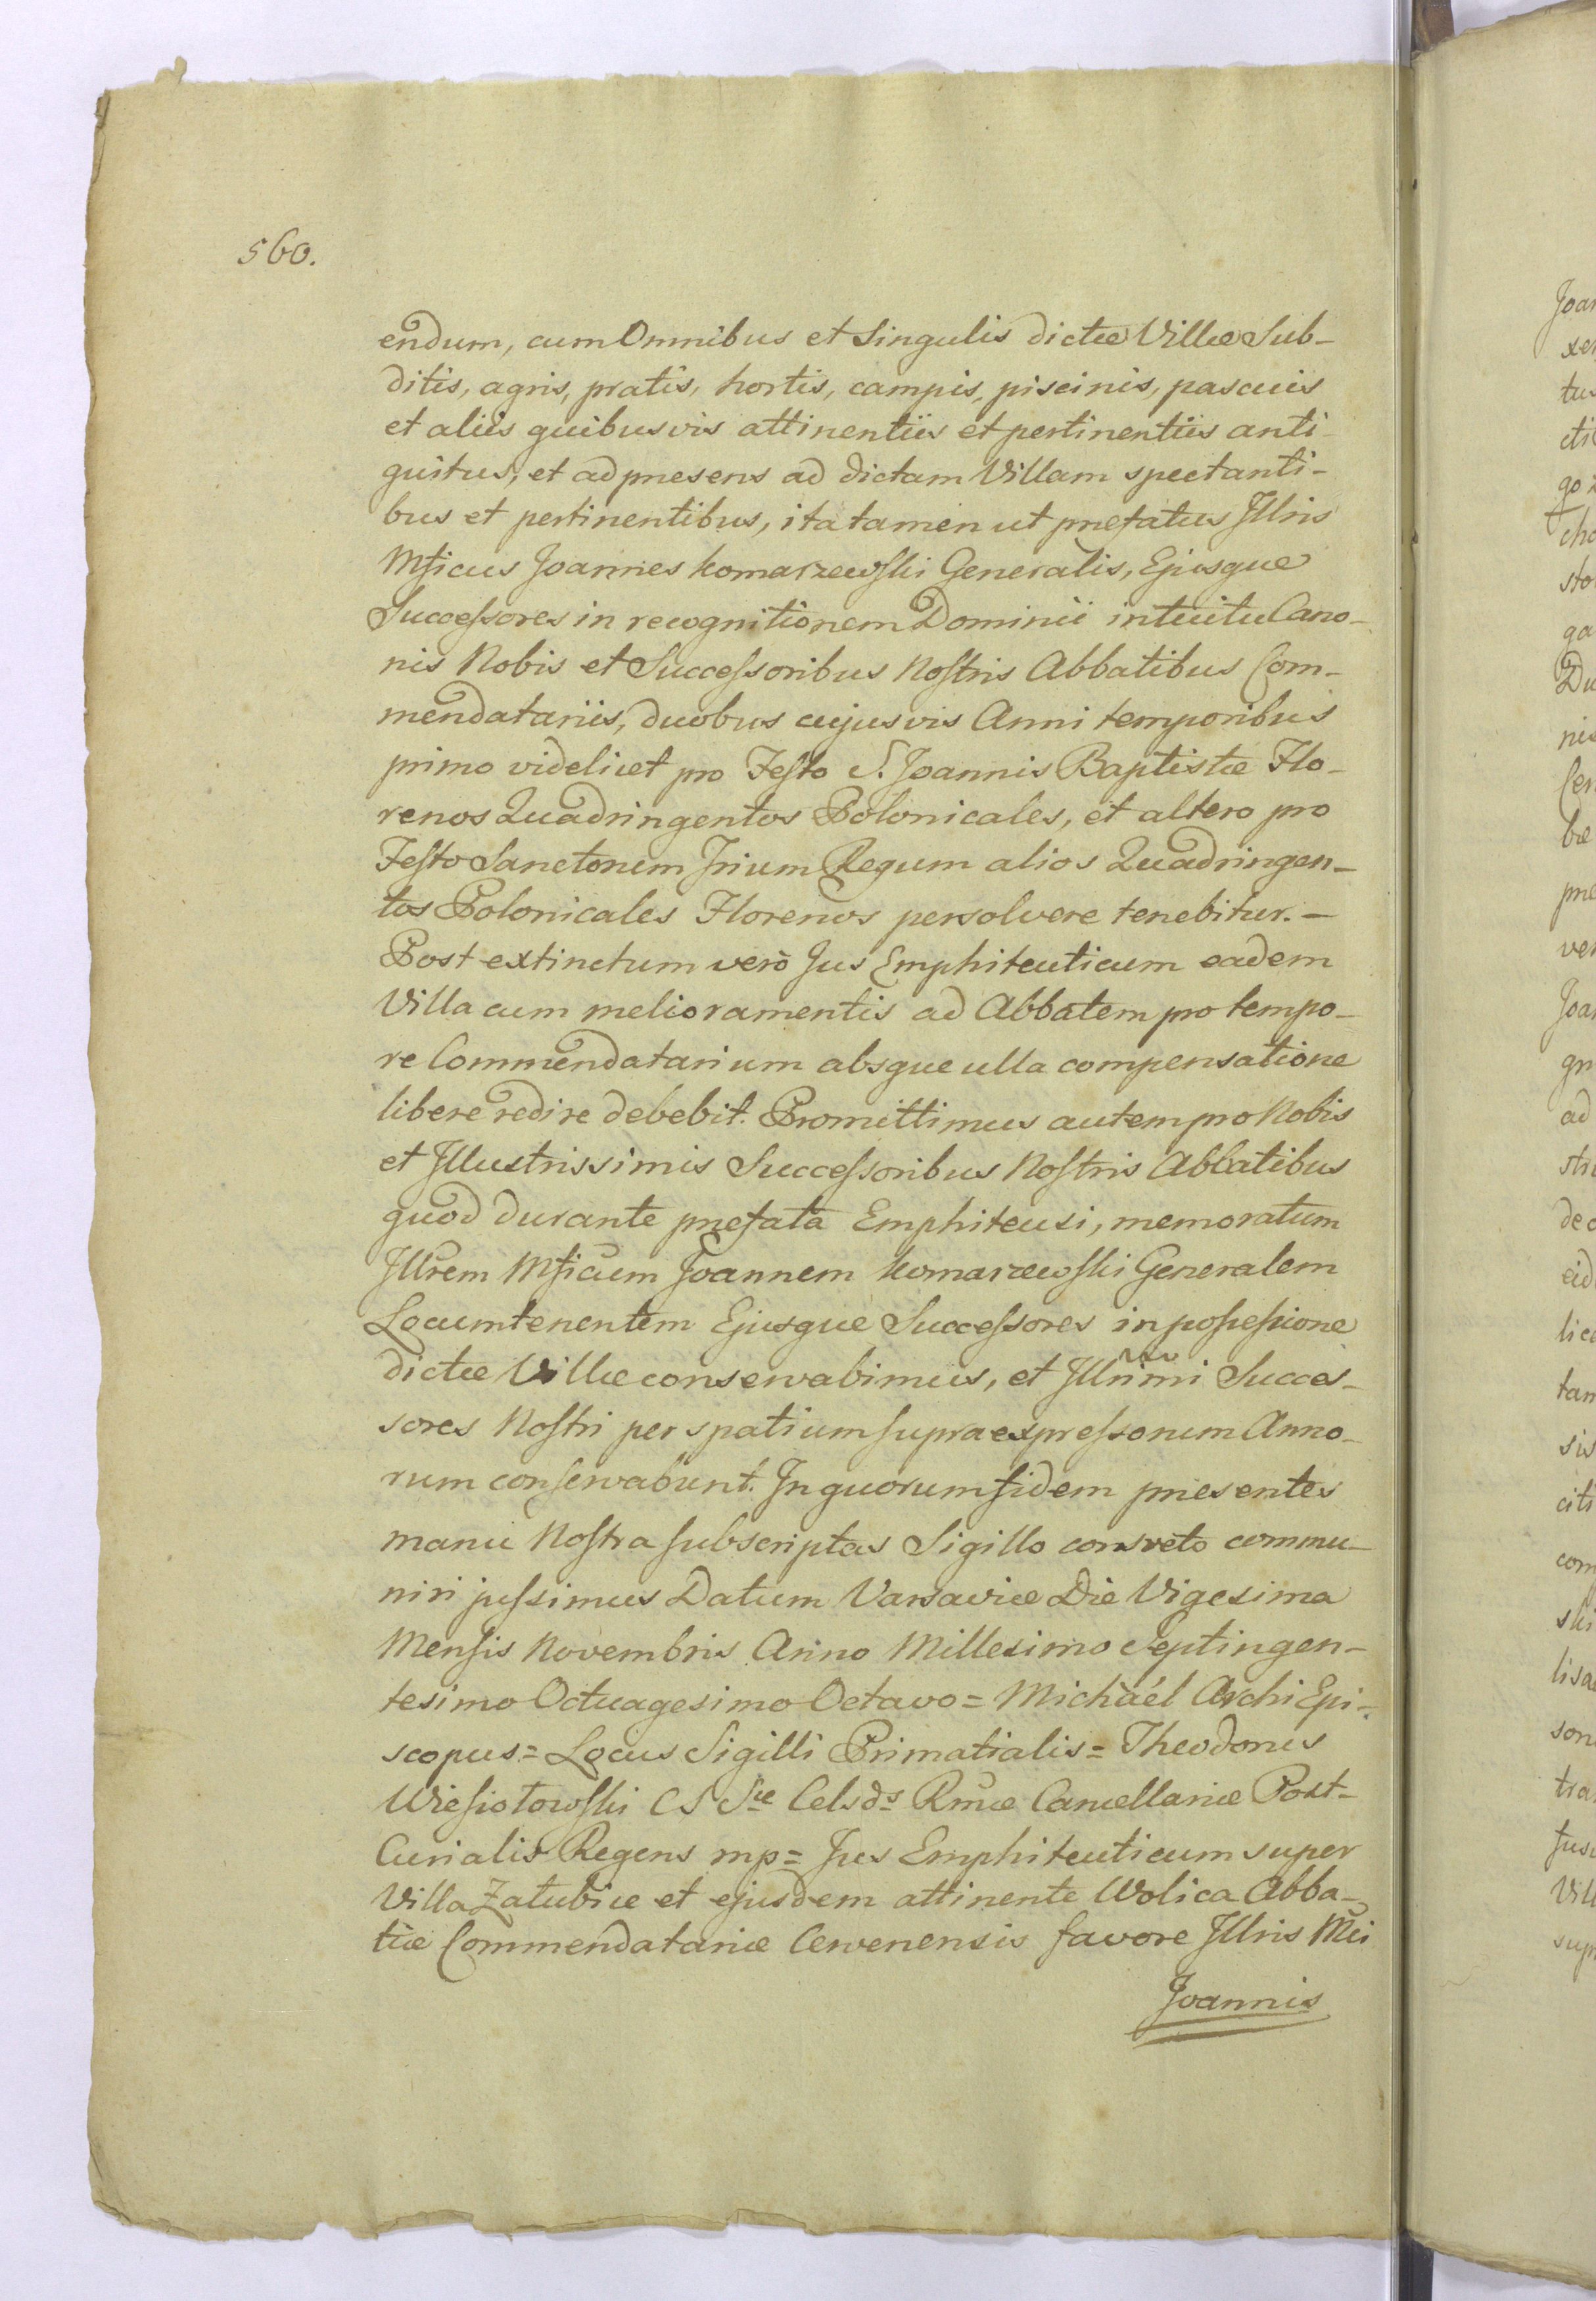 560.
endum, cum Omnibus et Singulis dictæ Villæ Sub-
ditis, agris, pratis, hortis, campis, piscinis, pascuis
et aliis quibusvis attinentiis et pertinentiis anti-
quitus, et ad præsens ad dictam Villam spectanti-
bus et pertinentibus, ita tamen ut præfatus Illris
Mficus Joannes Komarzewski Generalis, Ejusque
Successores in recognitionem Dominii intuitu Cano-
nis Nobis et Successoribus Nostris Abbatibus Com-
mendatariis, duobus cujusvis Anni temporibus
primo videlicet pro Festo S. Joannis Baptistæ Flo-
renos Quadringentos Polonicales, et altero pro
Festo Sanctorum Trium Regum alios Quadringen-
tos Polonicales Florenos persolvere tenebitur. -
Post extinctum verò Jus Emphiteuticum eadem
Villa cum melioramentis ad Abbatem pro tempo-
re Commendatarium absque ulla compensatione
libere redire debebit. Promittimus autem pro Nobis
et Illustrissimis Successoribus Nostris Abbatibus
quod durante præfata Emphiteusi, memoratum
Illrem Mficum Joannem Komarzewski Generalem
Locumtenentem Ejusque Successores in possessione
dictæ Villæ conservabimus, et Illrimi Succes-
sores Nostri per spatium supraexpressorum Anno-
rum conservabunt. In quorum fidem præsentes
manu Nostra subscriptas Sigillo consveto commu-
niri jussimus Datum Varsaviæ Die Vigesima
Mensis Novembris Anno Millesimo Septingen-
tesimo Octuagesimo Octavo = Michaël Archi Epi-
scopus = Locus Sigilli Primatialis = Theodorus
Wiesiołowski CS Sæ Celsds Rmæ Cancellariæ Post-
Curialis Regens mp = Jus Emphiteuticum super
Villa Zatubice et ejusdem attinente Wolica Abba-
tiæ Commendatariæ Cervenensis favore Illris Mci
Joannis